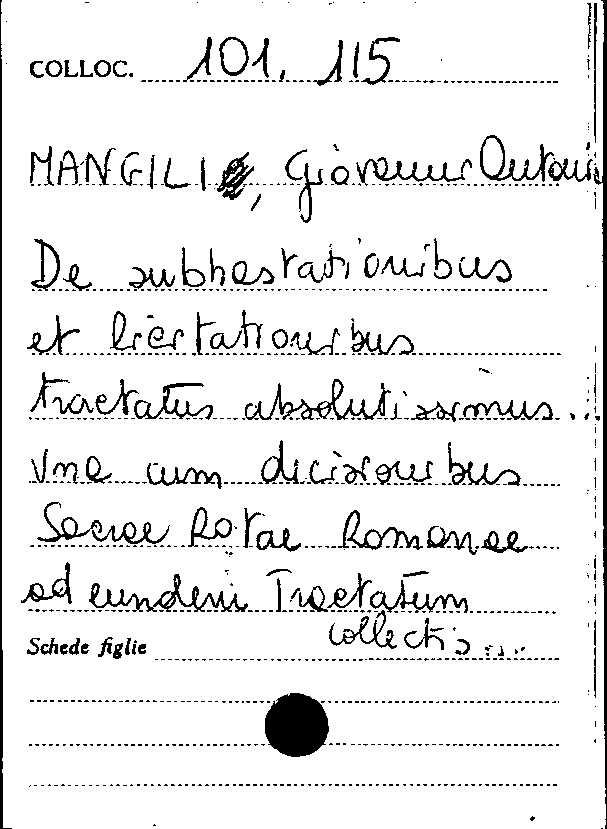 COLLOC. 101. 115
MANGILI, Giovanni Antonio
De subhastationibus
et licitationibus
tractatus absolutissimus...
Vna cum decisionibus
Sacrae Rotae Romanae
ad eundem Tractatum
collectis....
Schede figlie